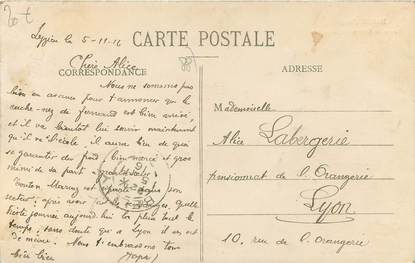 20 €
Leyrieu le 5-11-16
CARTE POSTALE
Chère Alice
CORRESPONDANCE
ADRESSE
Nous ne sommes pas
bien en avance pour t'annoncer que le
cache-nez de Fernand est bien arrivé,
et il va bientôt lui servir maintenant
qu'il va à l'école, il aura bien de quoi
se garantir du froid. Bien merci et gros
mimi de sa part
Tonton est dans son
secteur, après avoir
triste journée aujourd'hui la pluie tout le
temps, sans doute que à Lyon il en est
de même. Nous t'embrassons tous
bien bien
Mademoiselle
Alice Labergerie
pensionnat de l'Orangerie
Lyon
10, rue de l'orangerie